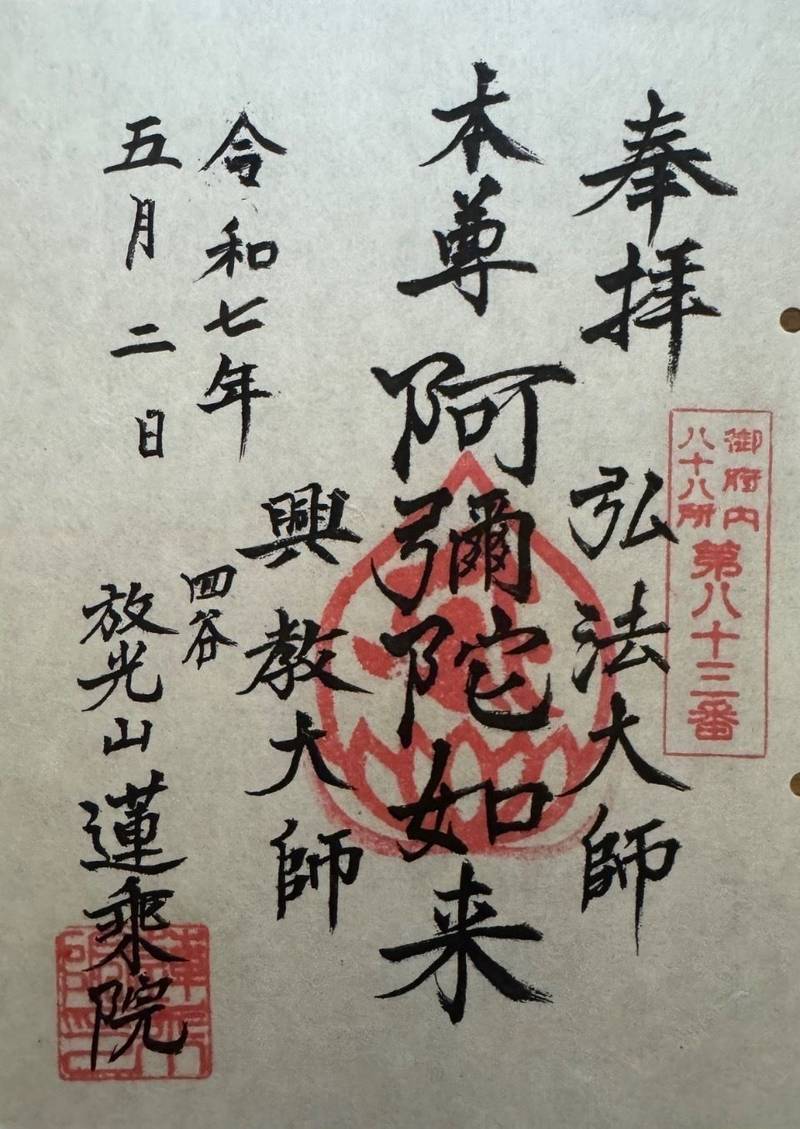 奉拝
御府内
八十八所
第八十三番
弘法大師
本尊
阿彌陀如来
興教大師
令和七年
五月二日
四谷
放光山
蓮乗院